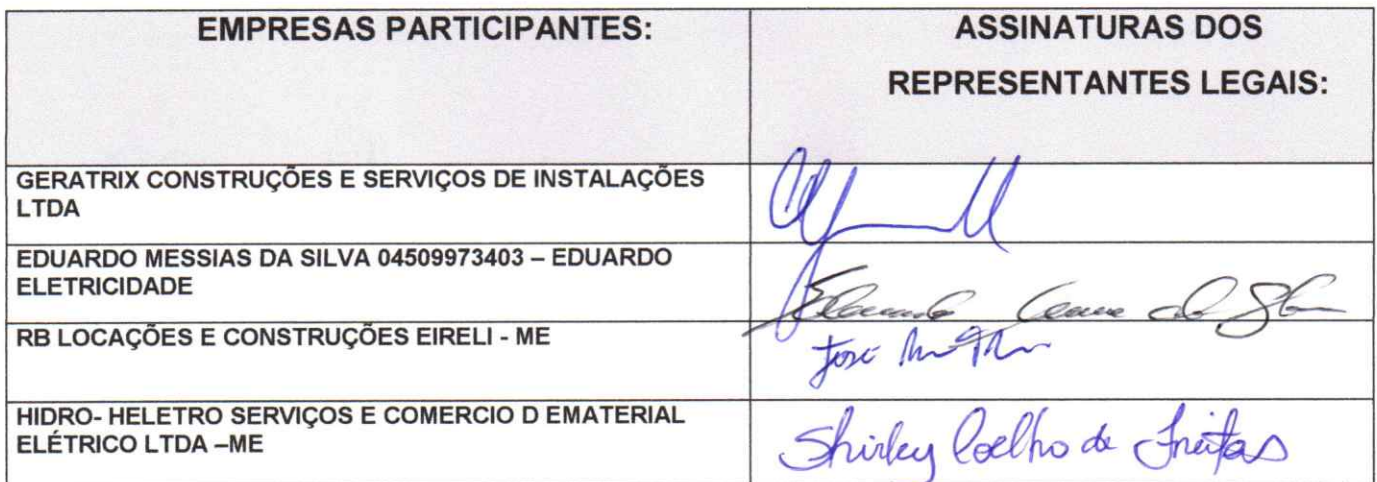 EMPRESAS PARTICIPANTES:
ASSINATURAS DOS
REPRESENTANTES LEGAIS:
GERATRIX CONSTRUÇÕES E SERVIÇOS DE INSTALAÇÕES
LTDA
EDUARDO MESSIAS DA SILVA 04509973403 – EDUARDO
ELETRICIDADE
RB LOCAÇÕES E CONSTRUÇÕES EIRELI - ME
José
HIDRO- HELETRO SERVIÇOS E COMERCIO D EMATERIAL
ELÉTRICO LTDA –ME
Shirley Coelho de Freitas